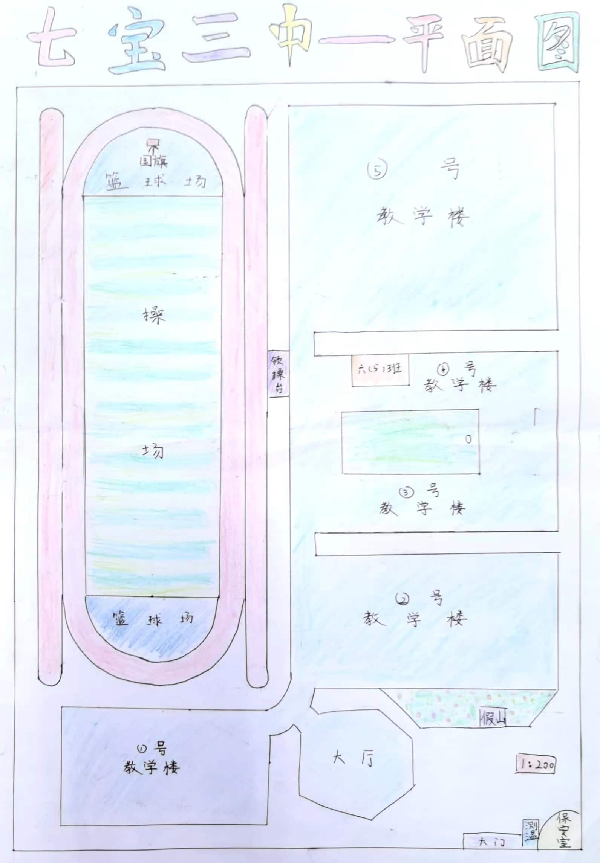 七宝三中—平面图
国旗
篮球场
操
场
篮球场
领操台
⑤号
教学楼
六(5)班
④号
教学楼
③号
教学楼
②号
教学楼
假山
①号
教学楼
大厅
1:200
测温
保安室
大门